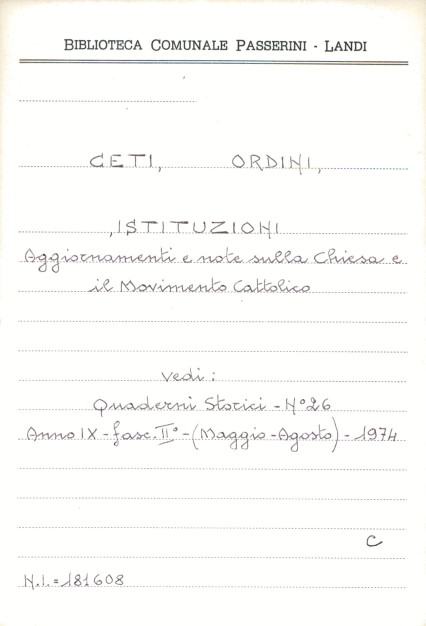 BIBLIOTECA COMUNALE PASSERINI - LANDI
CETI, ORDINI,
,ISTITUZIONI
Aggiornamenti e note sulla Chiesa e
il Movimento Cattolico
Vedi:
Quaderni Storici - N° 26
Anno IX - fasc. II° - (Maggio - Agosto) - 1974
C
N.I. = 181608